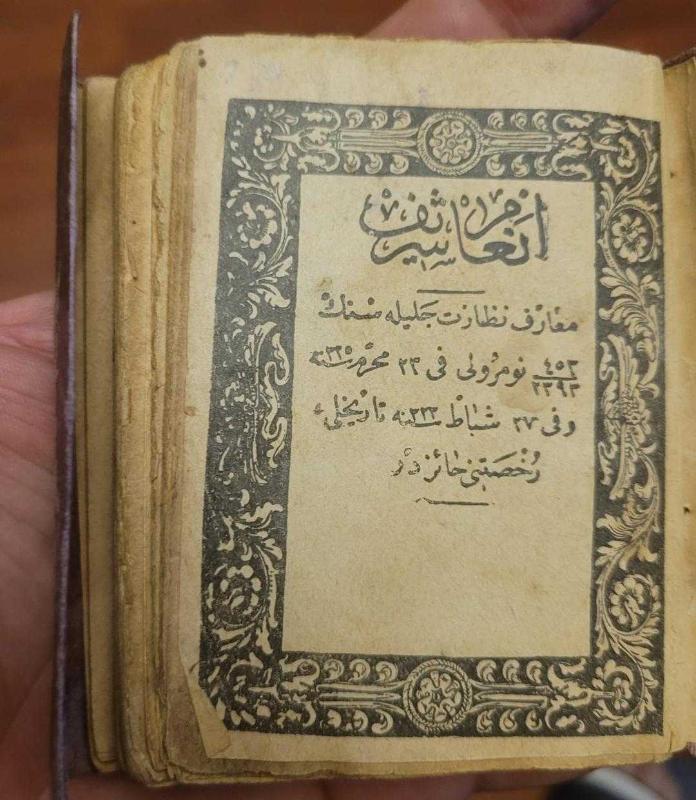 انعام شريف
معارف نظارت جليله سنك
٤٥٣ / ٢٣٩٣ نومرولى فى ٢٣ محرم سنه ٣٢٥
وفى ٢٧ شباط سنه ٣٢٢ تاريخلى
رخصتنى حائزدر